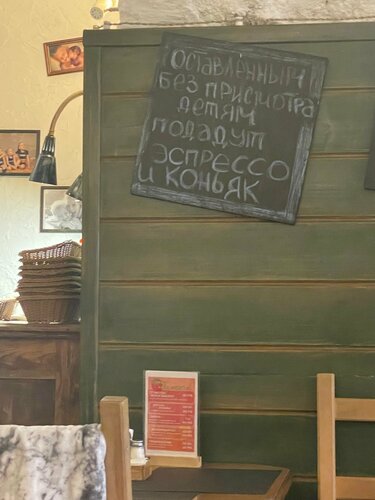 Оставленным
без присмотра
детям
подадут
эспрессо
и коньяк